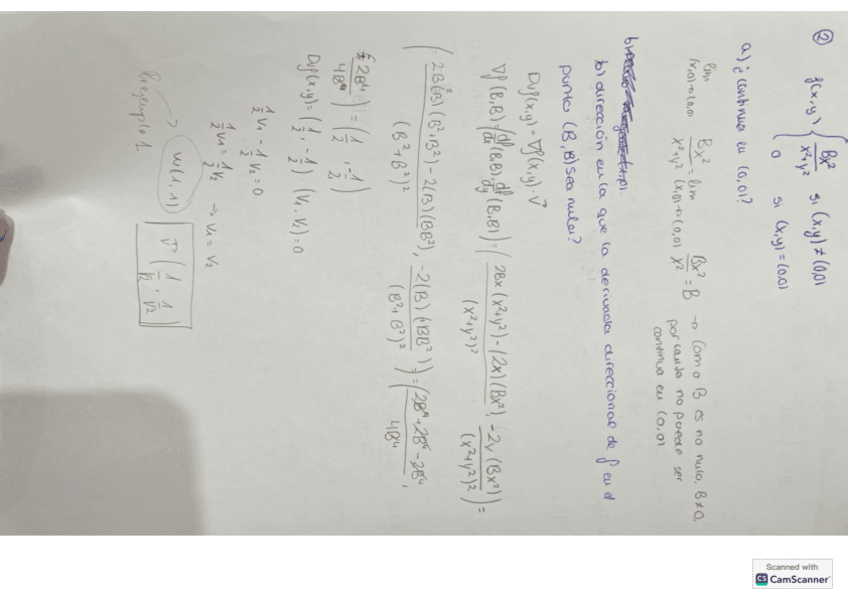 ② f(x,y) { Bx²/x²+y² si (x,y) ≠ (0,0)
0 si (x,y) = (0,0)
a) ¿continua en (0,0)?
lim (x,0)→(0,0) Bx²/x²+y² = lim (x,0)→(0,0) Bx²/x² = B → Como B es no nula, B≠0,
por tanto no puede ser
continua en (0,0)
b) dirección en la que la derivada direccional de f en el
punto (B,B) sea nula?
Dvf(x,y) = ∇f(x,y)·v
∇f(B,B) = (df/dx (B,B), df/dy (B,B)) = (2Bx(x²+y²) - (2x)(Bx²)/(x²+y²)², -2y(Bx²)/(x²+y²)²) =
(2B(B)(B²+B²) - 2(B)(BB²)/(B²+B²)², -2(B)(BB²)/(B²+B²)²) = (2B⁴+2B⁴-2B⁴/4B⁴,
2B⁴/4B⁴) = (1/2, -1/2)
Dvf(x,y) = (1/2, -1/2) · (V₁, V₂) = 0
1/2 V₁ - 1/2 V₂ = 0
1/2 V₁ = 1/2 V₂ → V₁ = V₂
Por ejemplo
w(1,1) → v(1/√2, 1/√2)
Scanned with
CS CamScanner